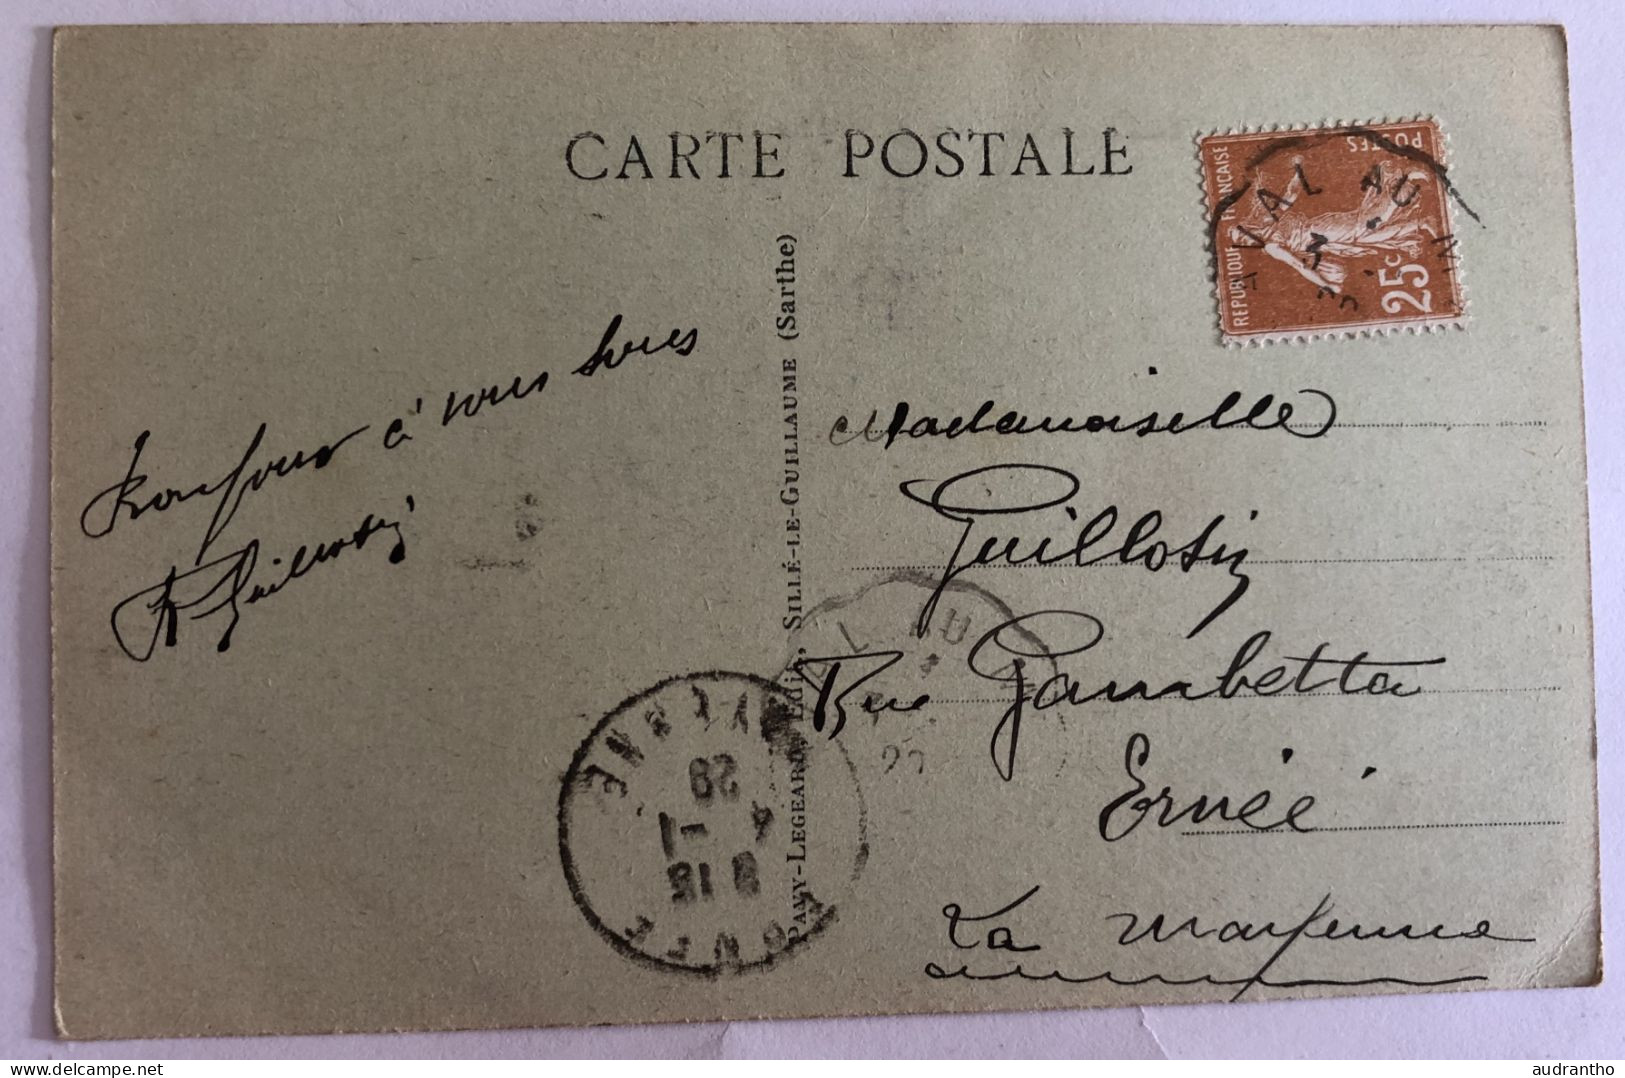 CARTE POSTALE
REPUBLIQUE FRANÇAISE
POSTES
25c
VAL AU
3
Bonjour à vous tous
Guillotin
PAVY-LEGEARD, Edit., SILLÉ-LE-GUILLAUME (Sarthe)
Mademoiselle
Guillotin
Rue Gambetta
Ernée
La Mayenne
AL AU
MAYENNE
8 15
4 -7
29
audrantho
delcampe.net